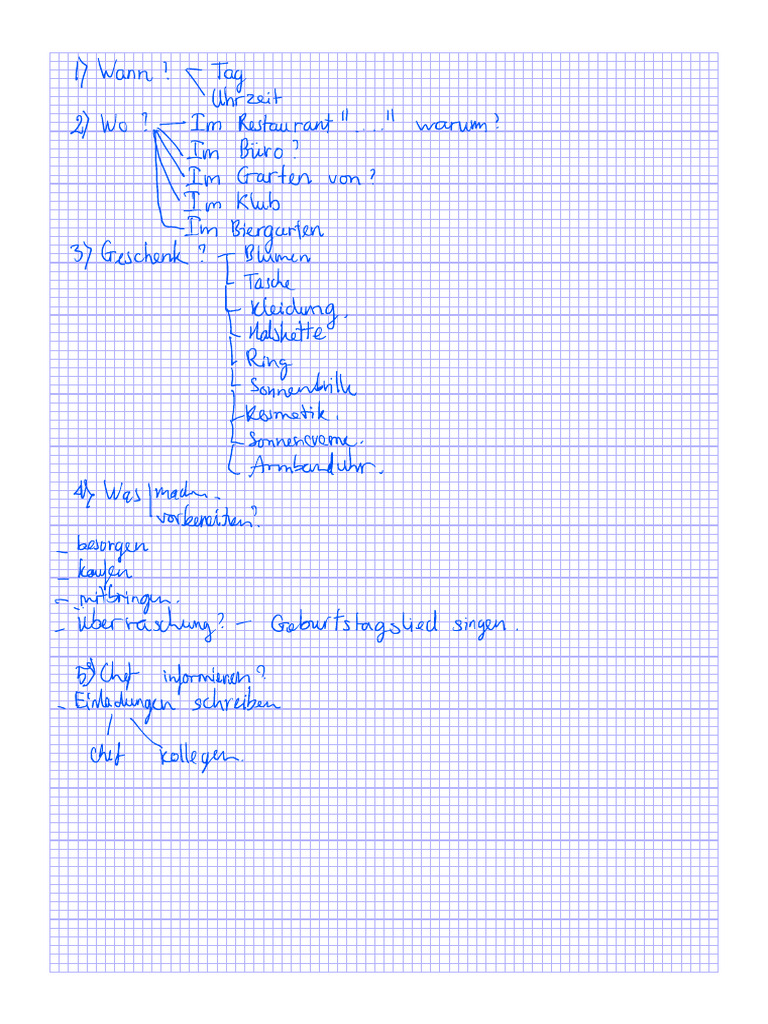 1) Wann? Tag
Uhrzeit
2) Wo? — Im Restaurant "...." warum?
Im Büro?
Im Garten von?
Im Klub
Im Biergarten
3) Geschenk? - Blumen
- Tasche
- Kleidung.
- Halskette
- Ring
- Sonnenbrille
- Kosmetik.
- Sonnencreme.
- Armbanduhr.
4) Was machen.
vorbereiten?
- besorgen
- kaufen
- mitbringen.
- Überraschung? - Geburtstagslied singen.
5) Chef informieren?
- Einladungen schreiben
Chef kollegen.